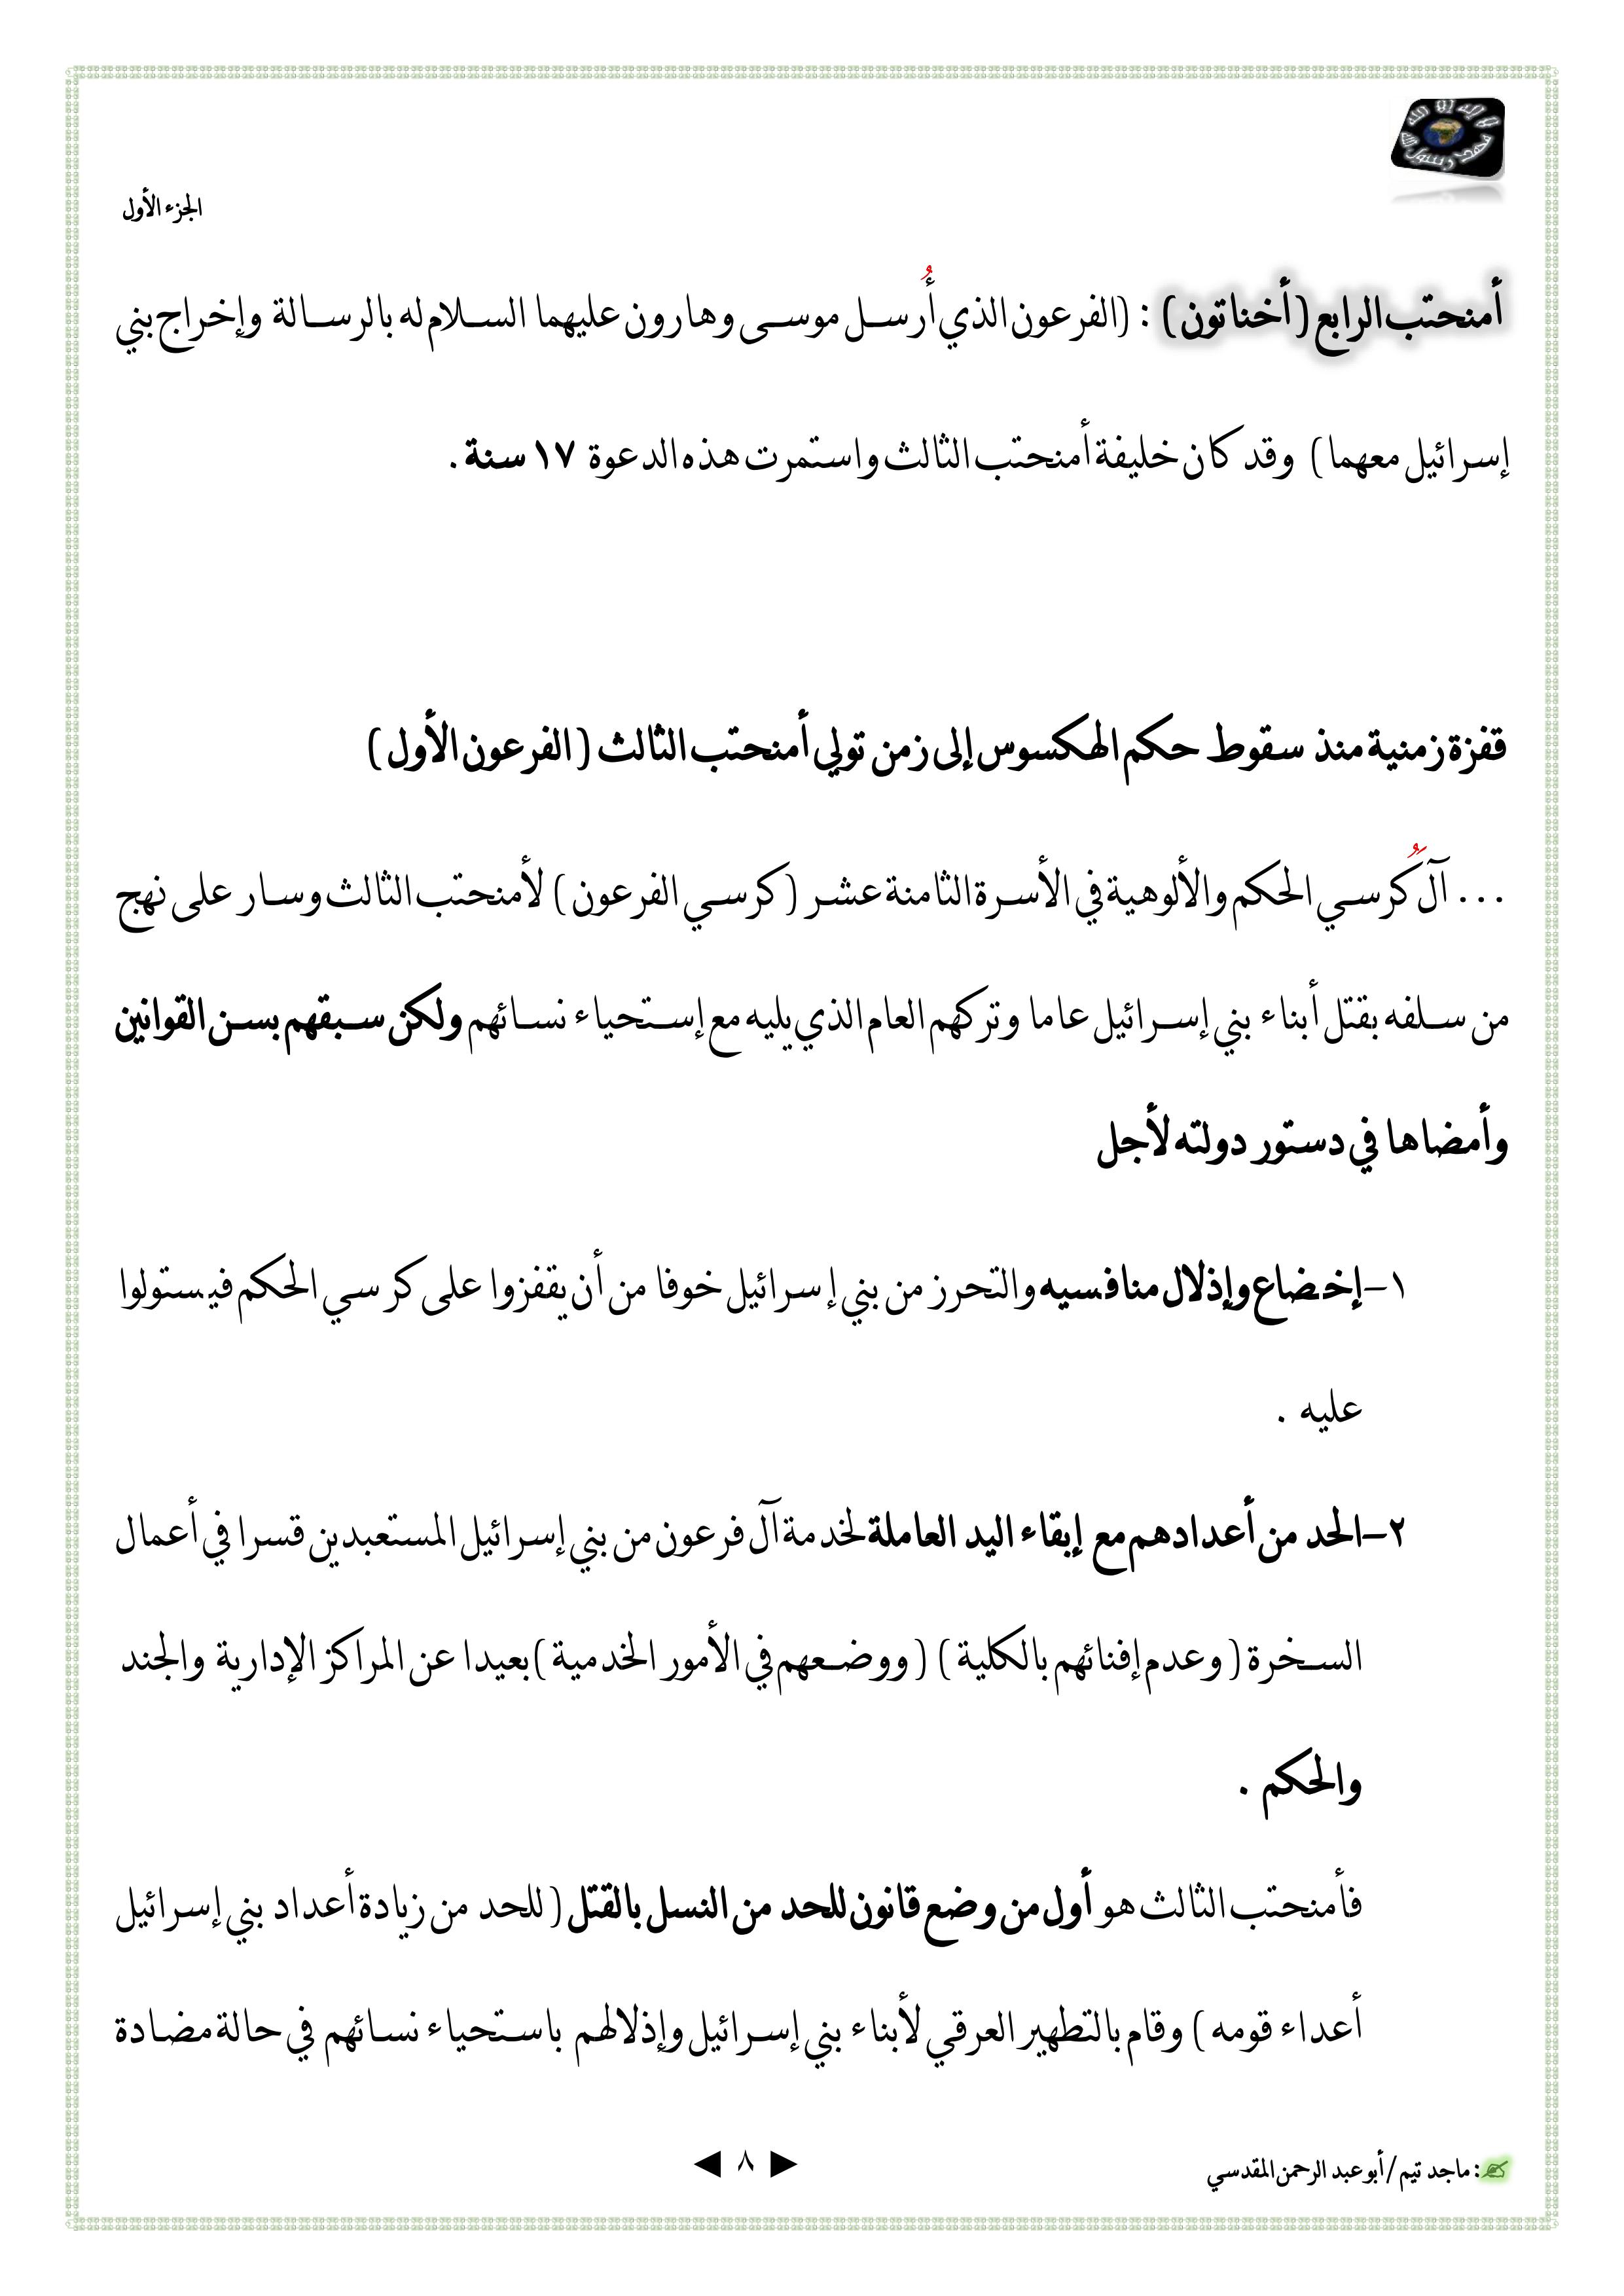 لا إله إلا الله
محمد رسول الله
الجزء الأول
أمنحتب الرابع (أخناتون) : (الفرعون الذي أُرسل موسى وهارون عليهما السلام له بالرسالة وإخراج بني
إسرائيل معهما) وقد كان خليفة أمنحتب الثالث واستمرت هذه الدعوة ١٧ سنة .
قفزة زمنية منذ سقوط حكم الهكسوس إلى زمن تولي أمنحتب الثالث ( الفرعون الأول )
... آل كُرسي الحكم والألوهية في الأسرة الثامنة عشر ( كرسي الفرعون ) لأمنحتب الثالث وسار على نهج
من سلفه بقتل أبناء بني إسرائيل عاما وتركهم العام الذي يليه مع إستحياء نسائهم ولكن سبقهم بسن القوانين
وأمضاها في دستور دولته لأجل
١- إخضاع وإذلال منافسيه والتحرز من بني إسرائيل خوفا من أن يقفزوا على كرسي الحكم فيستولوا
عليه .
٢- الحد من أعدادهم مع إبقاء اليد العاملة لخدمة آل فرعون من بني إسرائيل المستعبدين قسرا في أعمال
السخرة ( وعدم إفنائهم بالكلية ) ( ووضعهم في الأمور الخدمية ) بعيدا عن المراكز الإدارية والجند
والحكم .
فأمنحتب الثالث هو أول من وضع قانون للحد من النسل بالقتل ( للحد من زيادة أعداد بني إسرائيل
أعداء قومه ) وقام بالتطهير العرقي لأبناء بني إسرائيل وإذلالهم باستحياء نسائهم في حالة مضادة
✍: ماجد تيم / أبو عبد الرحمن المقدسي
◄ ٨ ►